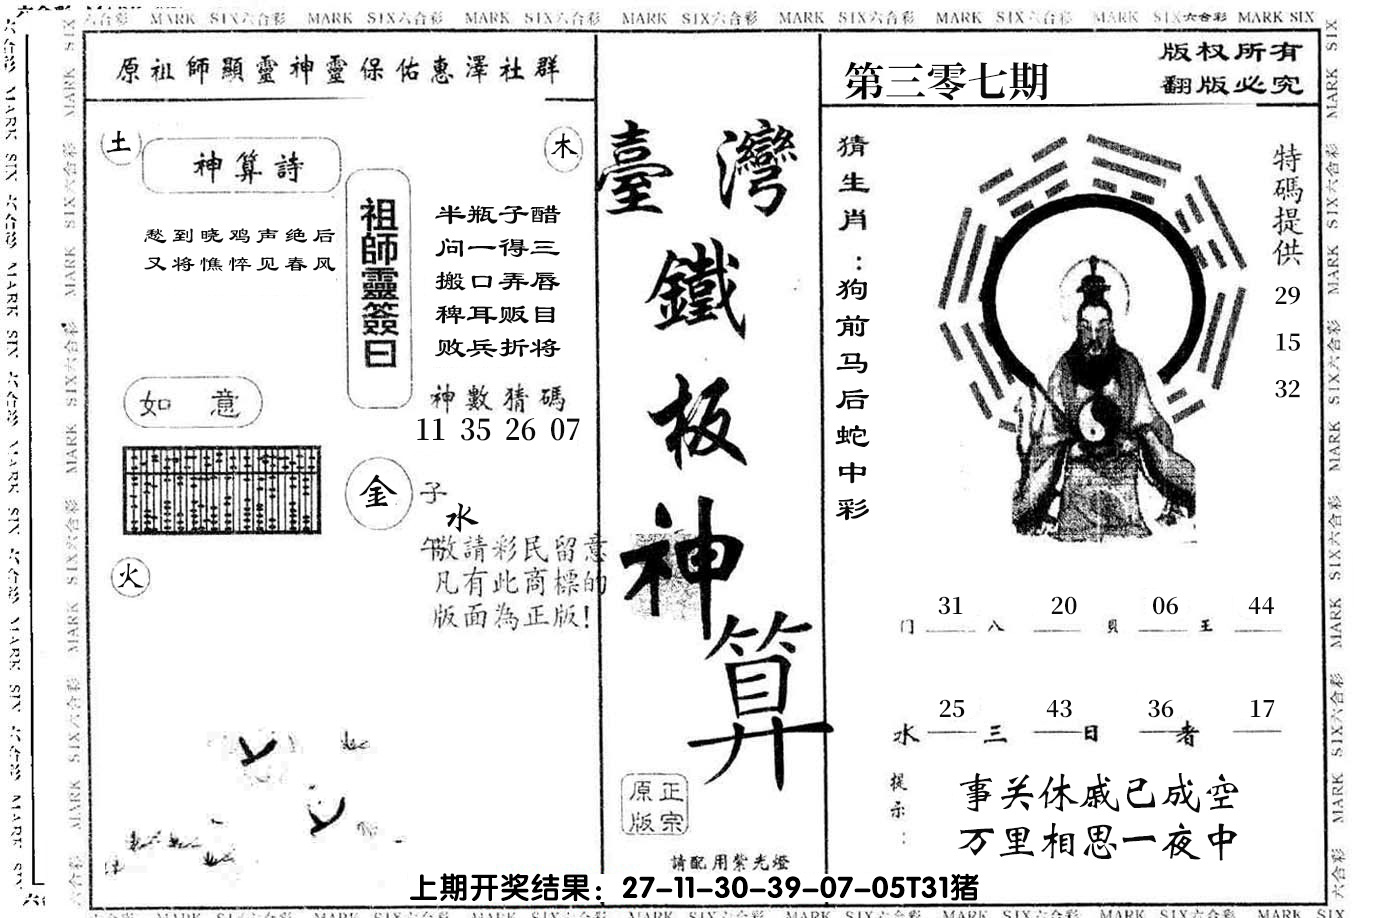 六合彩 MARK SIX六合彩 MARK SIX六合彩 MARK SIX六合彩 MARK SIX六合彩 MARK SIX六合彩 MARK SIX六合彩 MARK SIX六合彩 MARK SIX
原祖師顯靈神靈保佑惠澤社群
土
神算詩
愁到晓鸡声绝后
又将憔悴见春风
如 意
火
木
祖師靈簽曰
半瓶子醋
问一得三
搬口弄唇
稗耳贩目
败兵折将
神數猜碼
11 35 26 07
金
子
水
午敬請彩民留意
凡有此商標的
版面為正版!
臺灣
鐵
板
神
算
正宗
原版
請配用紫光燈
第三零七期
版权所有
翻版必究
猜生肖:狗前马后蛇中彩
特碼提供
29
15
32
31 20 06 44
门 八 貝 王
25 43 36 17
水 三 日 者
提示:
事关休戚已成空
万里相思一夜中
上期开奖结果：27-11-30-39-07-05T31猪